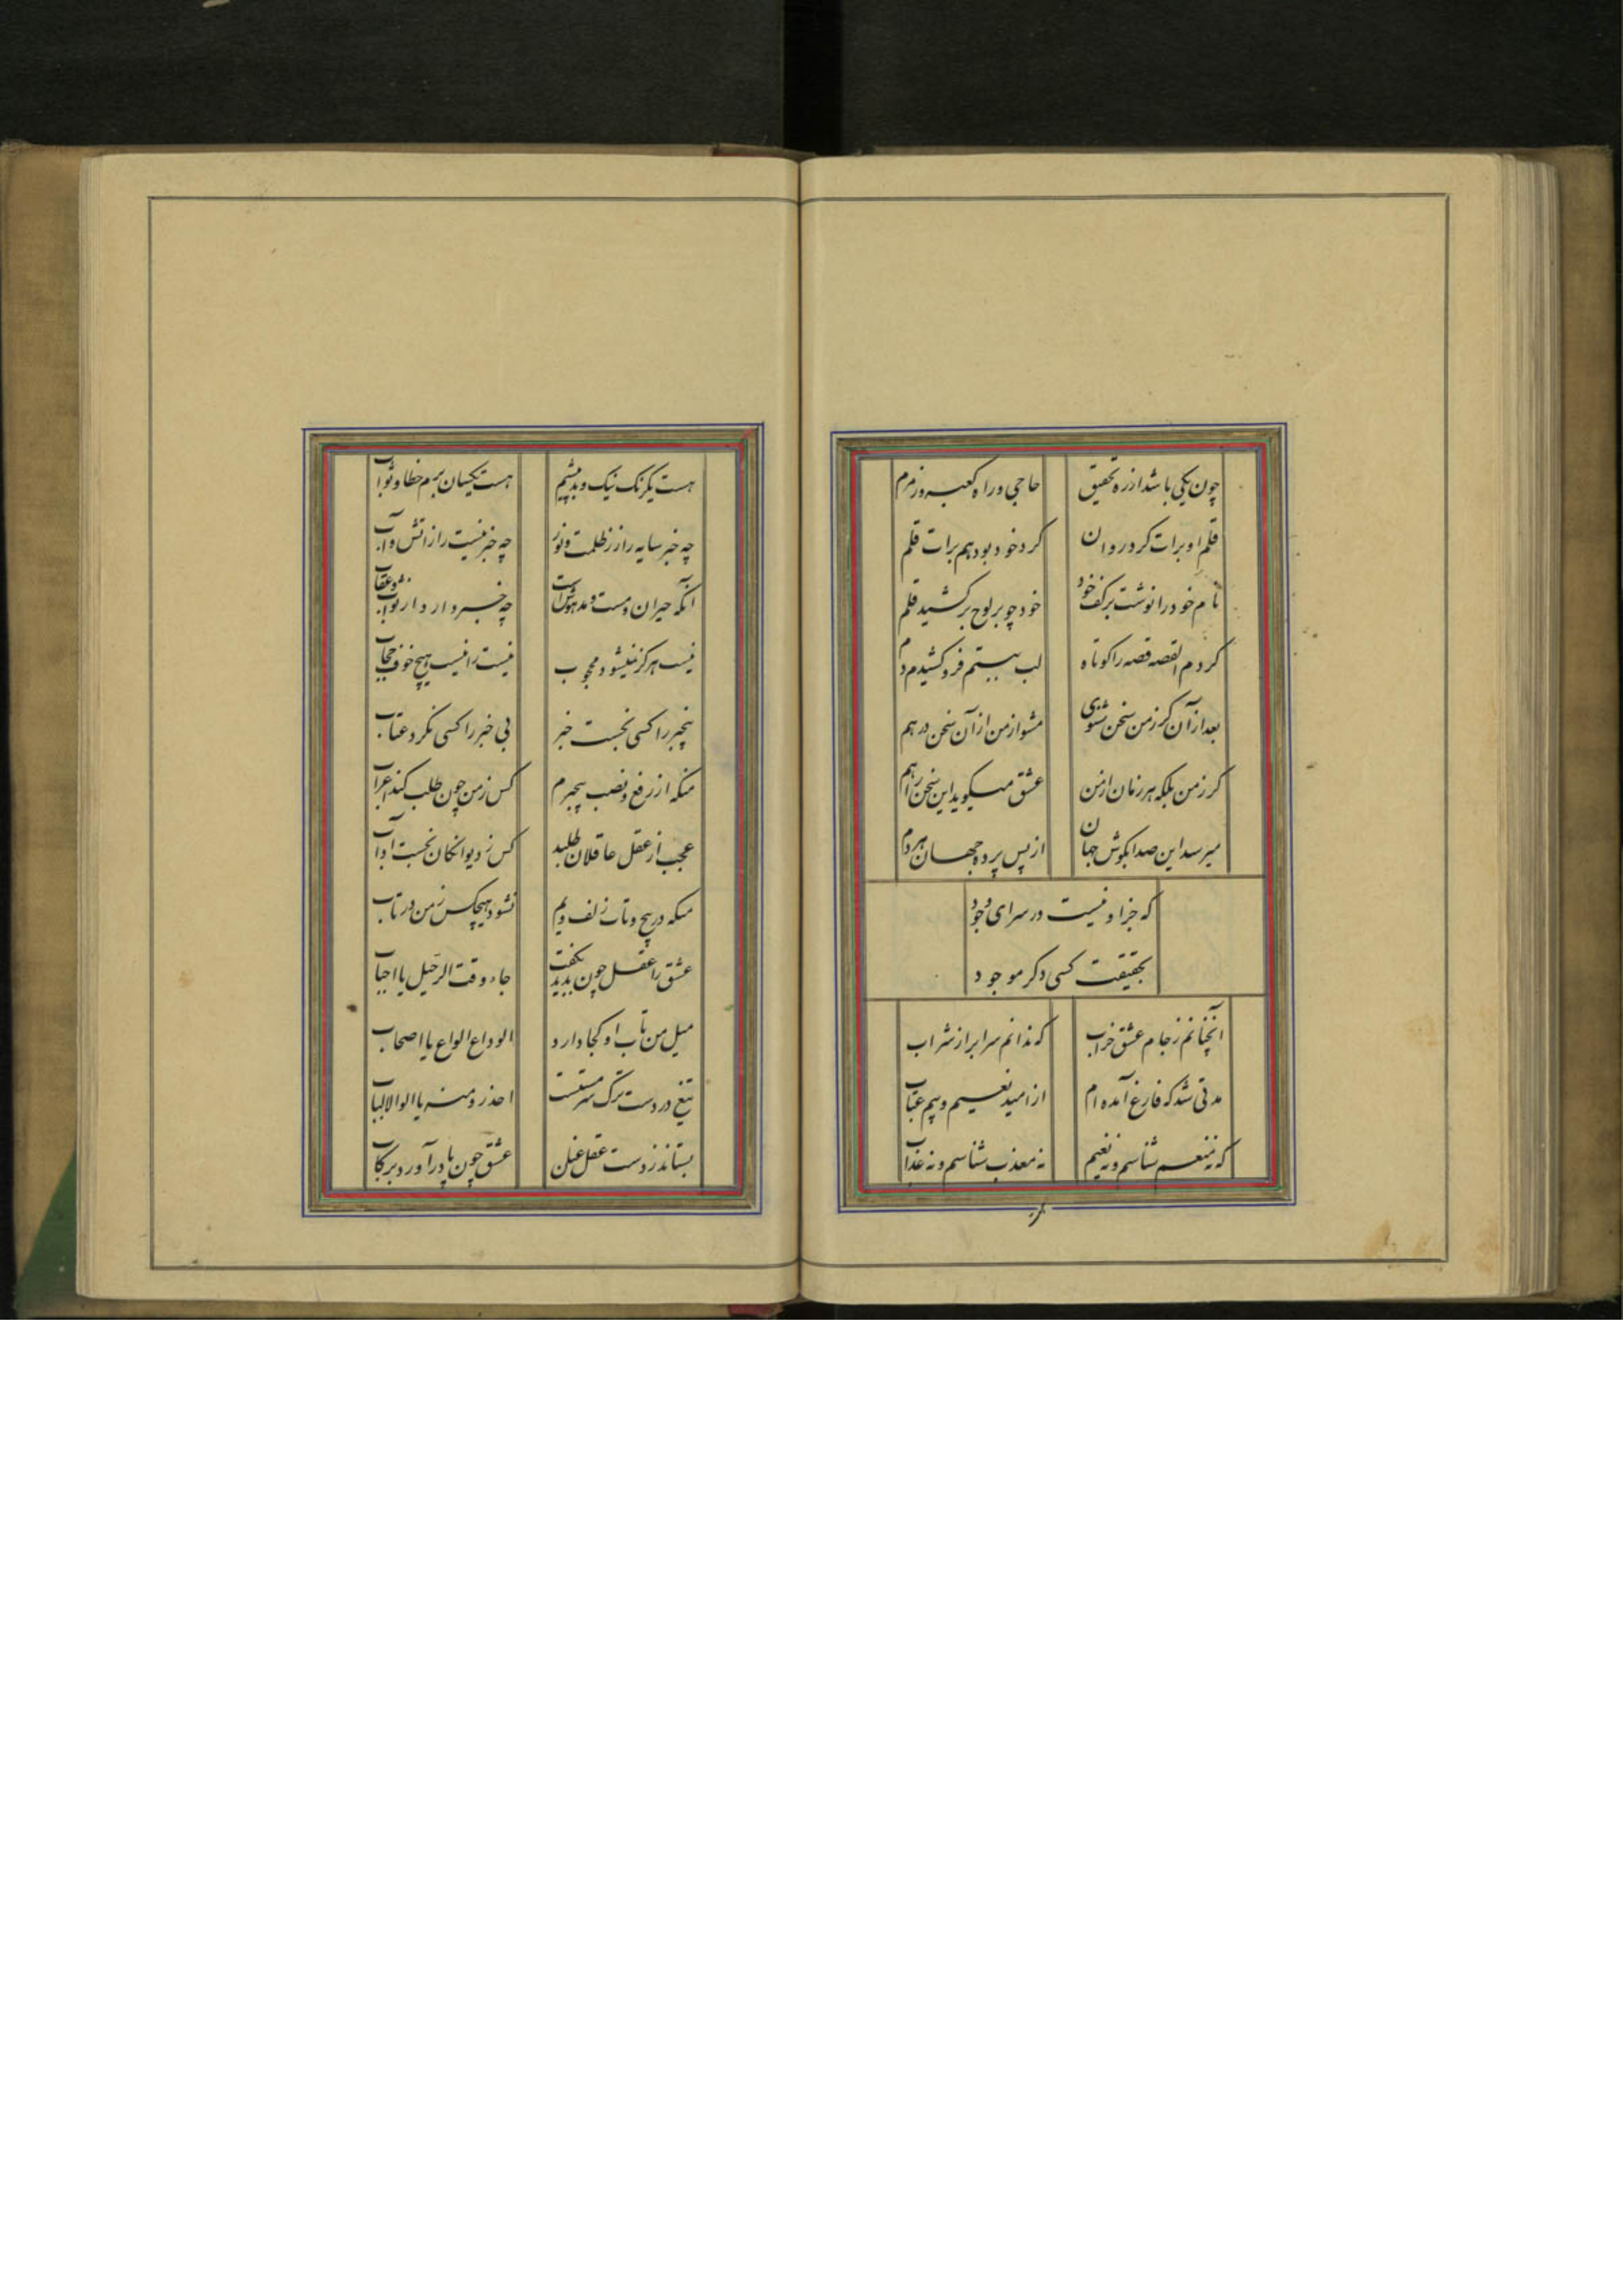 چون یکی باشد از ره تحقیق حاجی و راه کعبه و زمزم
قلم او برات کرد روان کرد خود بود هم برات قلم
نام خود را نوشت بر کف خود خود چو بر لوح برکشید قلم
کردم القصه قصه را کوتاه لب ببستم فرو کشیدم دم
بعد از آن کر ز من سخن شنوی مشو از من از آن سخن درهم
کر ز من بلکه هر زمان از من عشق میکوید این سخن را هم
میرسد این صدا بکوش جهان از پس پرده جهان هر دم
که جز او نیست در سرای وجود
بحقیقت کسی دکر موجود
آنچنانم ز جام عشق خراب که ندانم سرابرا ز شراب
مدتی شد که فارغ آمده ام از امید نعیم و بیم عتاب
که نه منعم شناسم و نه نعیم نه معذب شناسم و نه عذاب
هست یکرنک نیک و بد پیشم هست یکسان برم خطا و ثواب
چه خبر سایه را ز ظلمت و نور چه خبر نیست را ز آتش و آب
آنکه حیران و مست و مدهوش است چه خبر دارد از ثواب و عقاب
نیست هرکز نمیشود محجوب نیست را نیست هیچ خوف حجاب
بیخبر را کسی نجست خبر بی خبر را کسی نکرد عتاب
منکه از رفع و نصب بیخبرم کس ز من چون طلب کند اعراب
عجب ار عقل عاقلان طلبد کس ز دیوانکان نجست آداب
منکه در پیچ و تاب زلف ویم نشود هیچکس ز من در تاب
عشق را عقل چون بدید بکفت جاء وقت الرحیل یا احباب
میل من تاب او کجا دارد الوداع الواع یا اصحاب
تیغ در دست ترک سرمستست احذروا منه یا الوالالباب
بستاند ز دست عقل عنان عشق چون پا درآورد برکاب